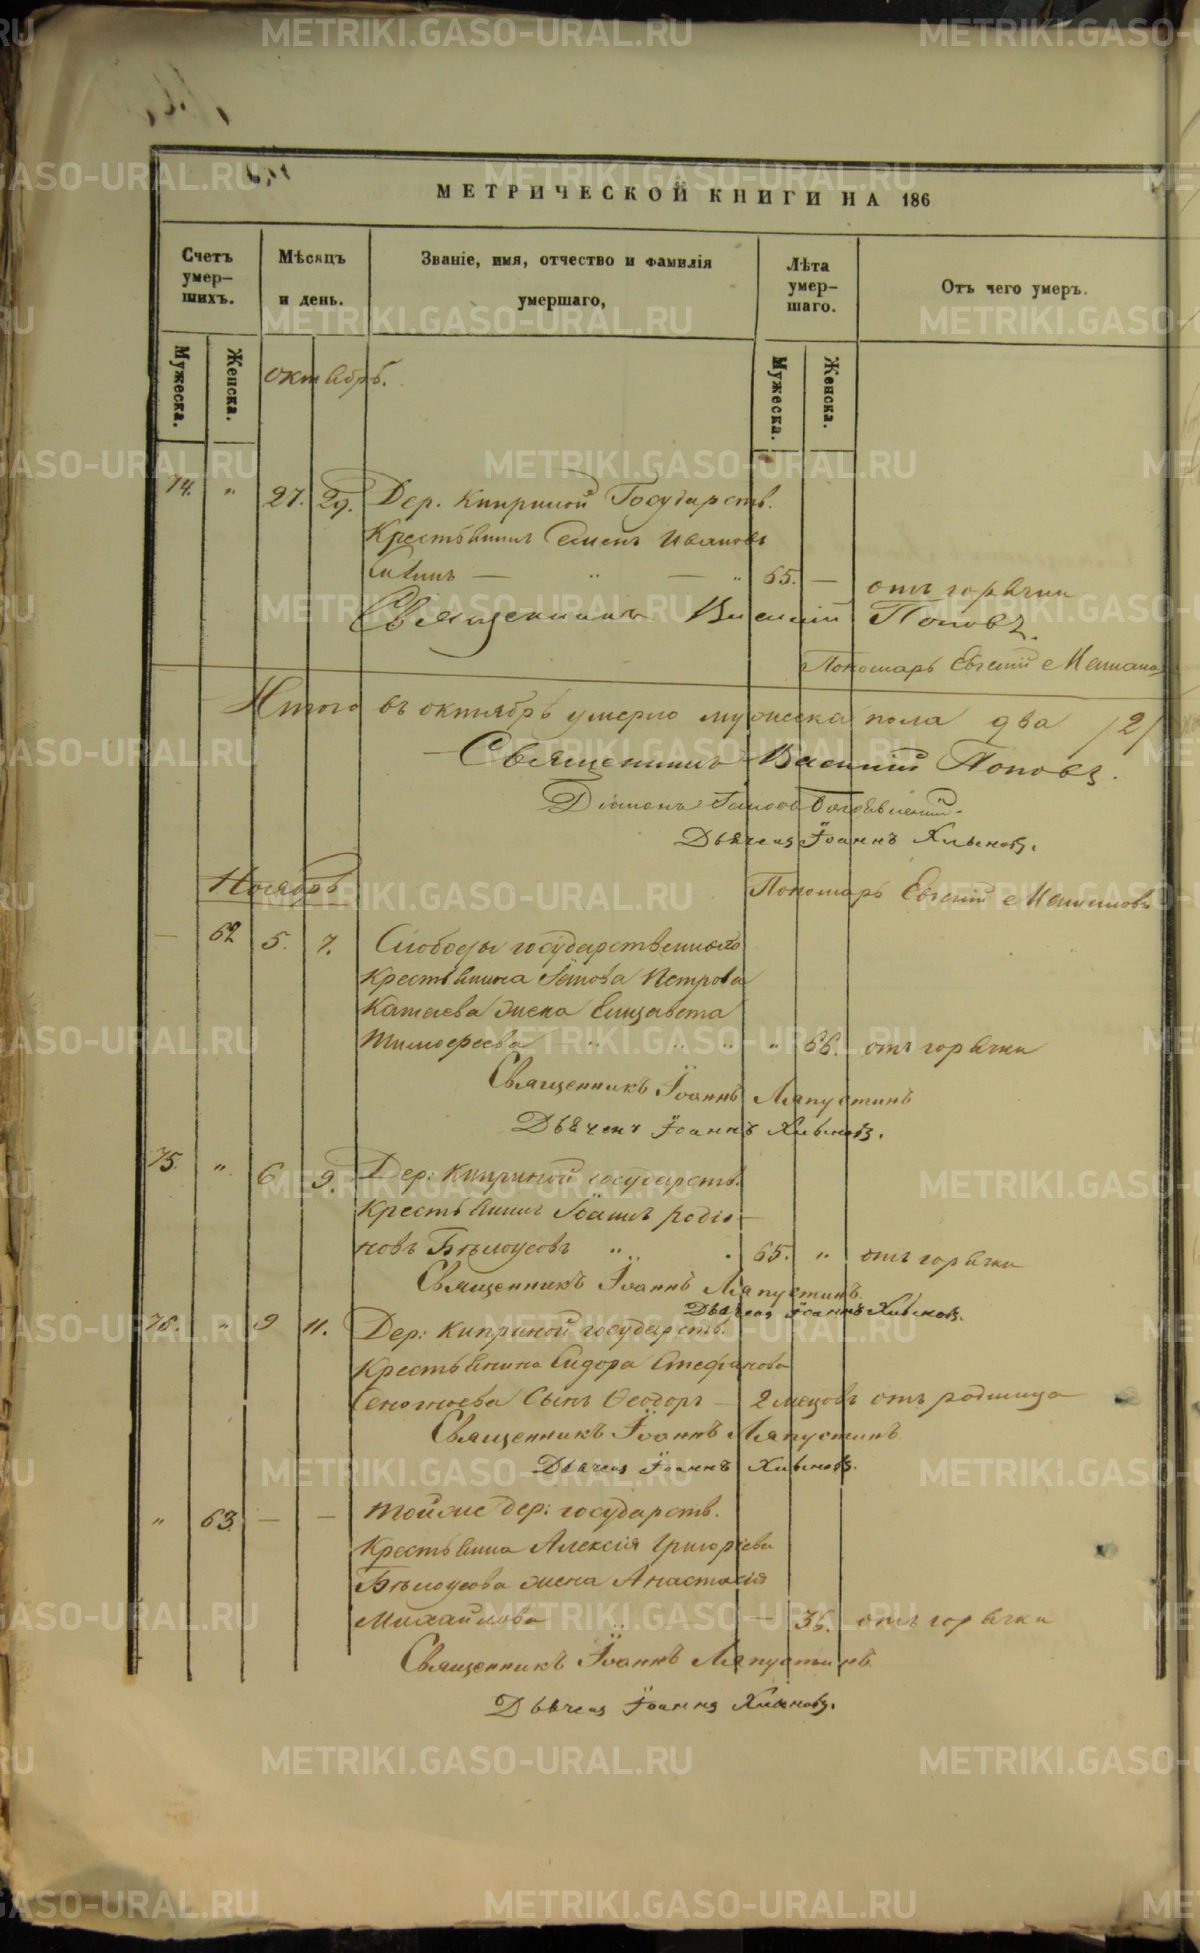 МЕТРИЧЕСКОЙ КНИГИ НА 186
Счетъ умер-шихъ.
Мѣсяцъ и день.
Званіе, имя, отчество и фамилія умершаго,
Лѣта умер-шаго.
Отъ чего умеръ.
Мужеска. Женска.
Мужеска. Женска.
октябрь.
74. " 27. 29. Дер. Киприной Государств.
Крестьянинъ Семенъ Ивановъ
— " — " 65. — отъ горячки
Священникъ Василій Поповъ.
Пономарь Евгеній
Итого въ октябрѣ умерло мужеска пола два /2/
Священникъ Василій Поповъ.
Діаконъ Іаковъ Богоявленскій.
Дьячекъ Іоаннъ Хлыновъ.
Ноябрь
Пономарь Евгеній
— 62 5. 7. Слободы государственнаго
Крестьянина Іакова Петрова
Катаева жена Елизавета
Тимоѳеева " " " " 66. отъ горячки
Священникъ Іоаннъ Ляпустинъ
Дьячекъ Іоаннъ Хлыновъ.
75. " 6 9. Дер: Киприной государств.
Крестьянинъ Іоаннъ Родіо-
новъ Бѣлоусовъ " 65. " отъ горячки
Священникъ Іоаннъ Ляпустинъ.
Дьячекъ Іоаннъ Хлыновъ.
76. " 9 11. Дер: Киприной государств.
Крестьянина Сидора Стефанова
Сынъ Ѳеодоръ — 2 мѣсяцовъ отъ родимца
Священникъ Іоаннъ Ляпустинъ
Дьячекъ Іоаннъ Хлыновъ.
" 63. — — Тойже дер: государств.
Крестьянина Алексія Григоріева
Бѣлоусова жена Анастасія
Михайлова — 36. отъ горячки
Священникъ Іоаннъ Ляпустинъ
Дьячекъ Іоаннъ Хлыновъ.
METRIKI.GASO-URAL.RU